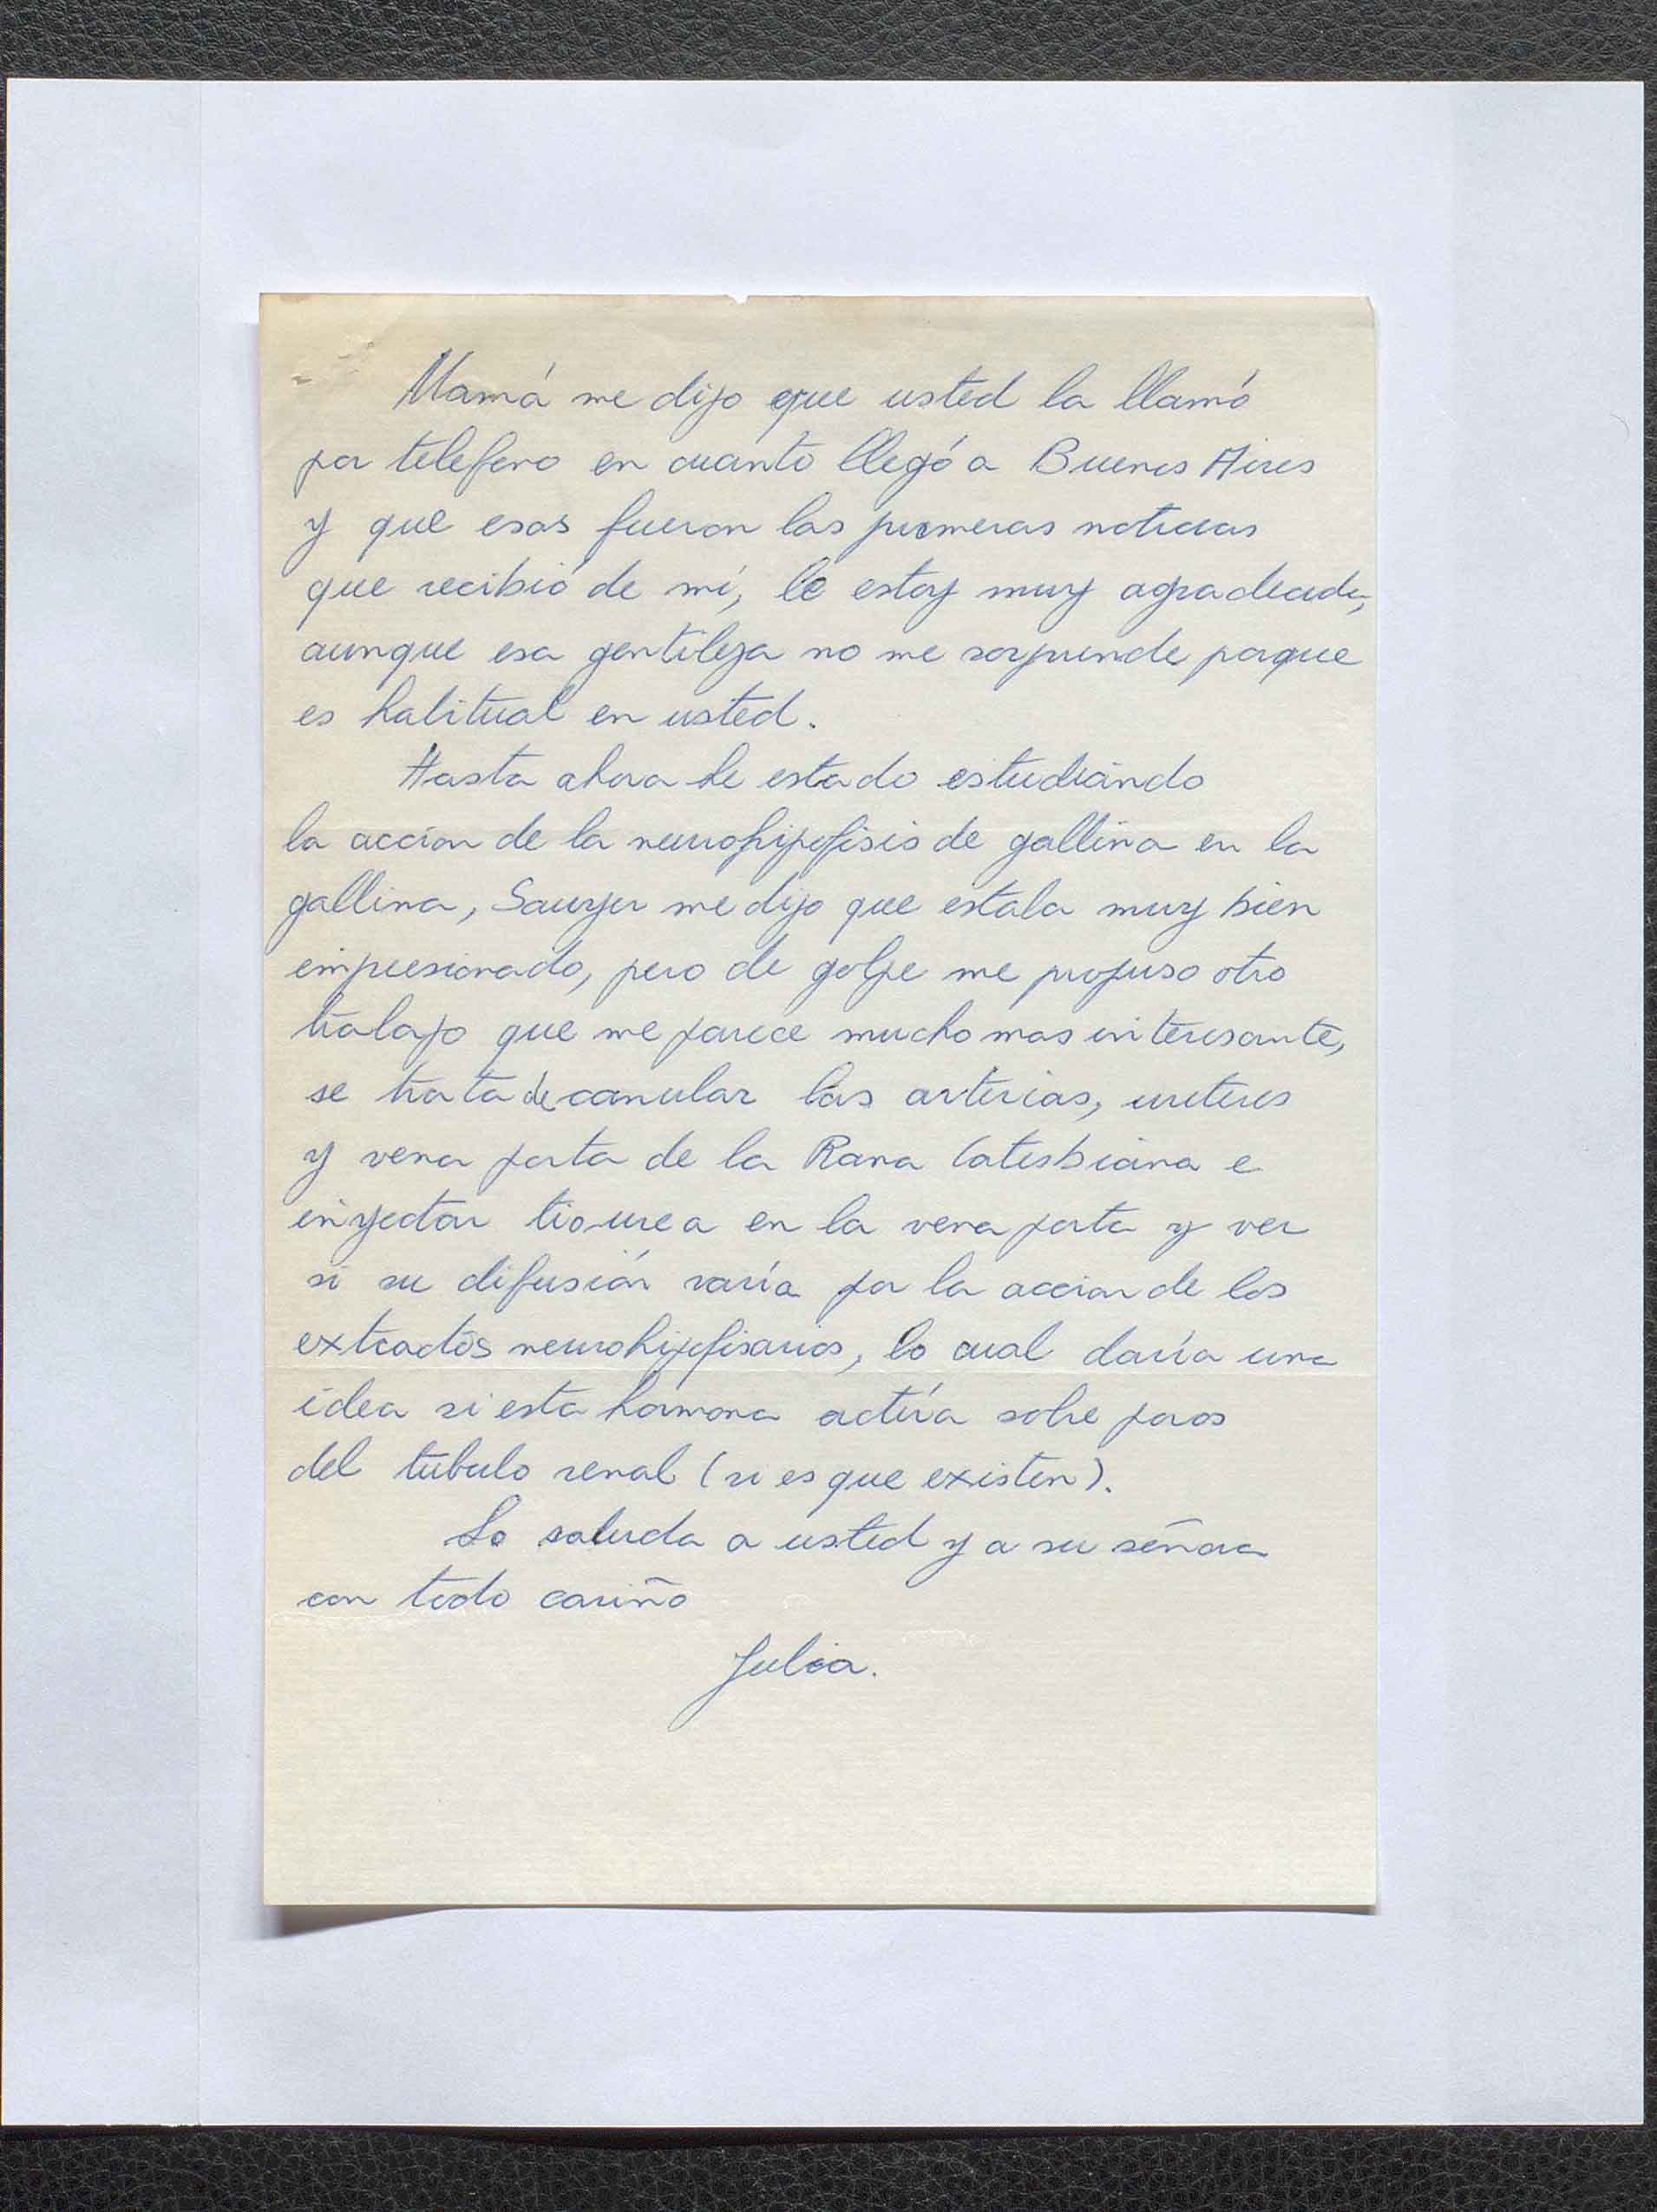 Mamá me dijo que usted la llamó
por telefono en cuanto llegó a Buenos Aires
y que esas fueron las primeras noticias
que recibió de mí, le estoy muy agradecida,
aunque esa gentileza no me sorprende porque
es habitual en usted.
Hasta ahora he estado estudiando
la acción de la neurohipofisis de gallina en la
gallina, Sawyer me dijo que estaba muy bien
impresionado, pero de golpe me propuso otro
trabajo que me parece mucho mas interesante,
se trata de canular las arterias, ureteres
y vena porta de la Rana Catesbiana e
inyectar tiourea en la vena porta y ver
si su difusión varía por la accion de los
extractos neurohipofisarios, lo cual daría una
idea si esta hormona actúa sobre poros
del túbulo renal (si es que existen).
Lo saluda a usted y a su señora
con todo cariño
Julia.